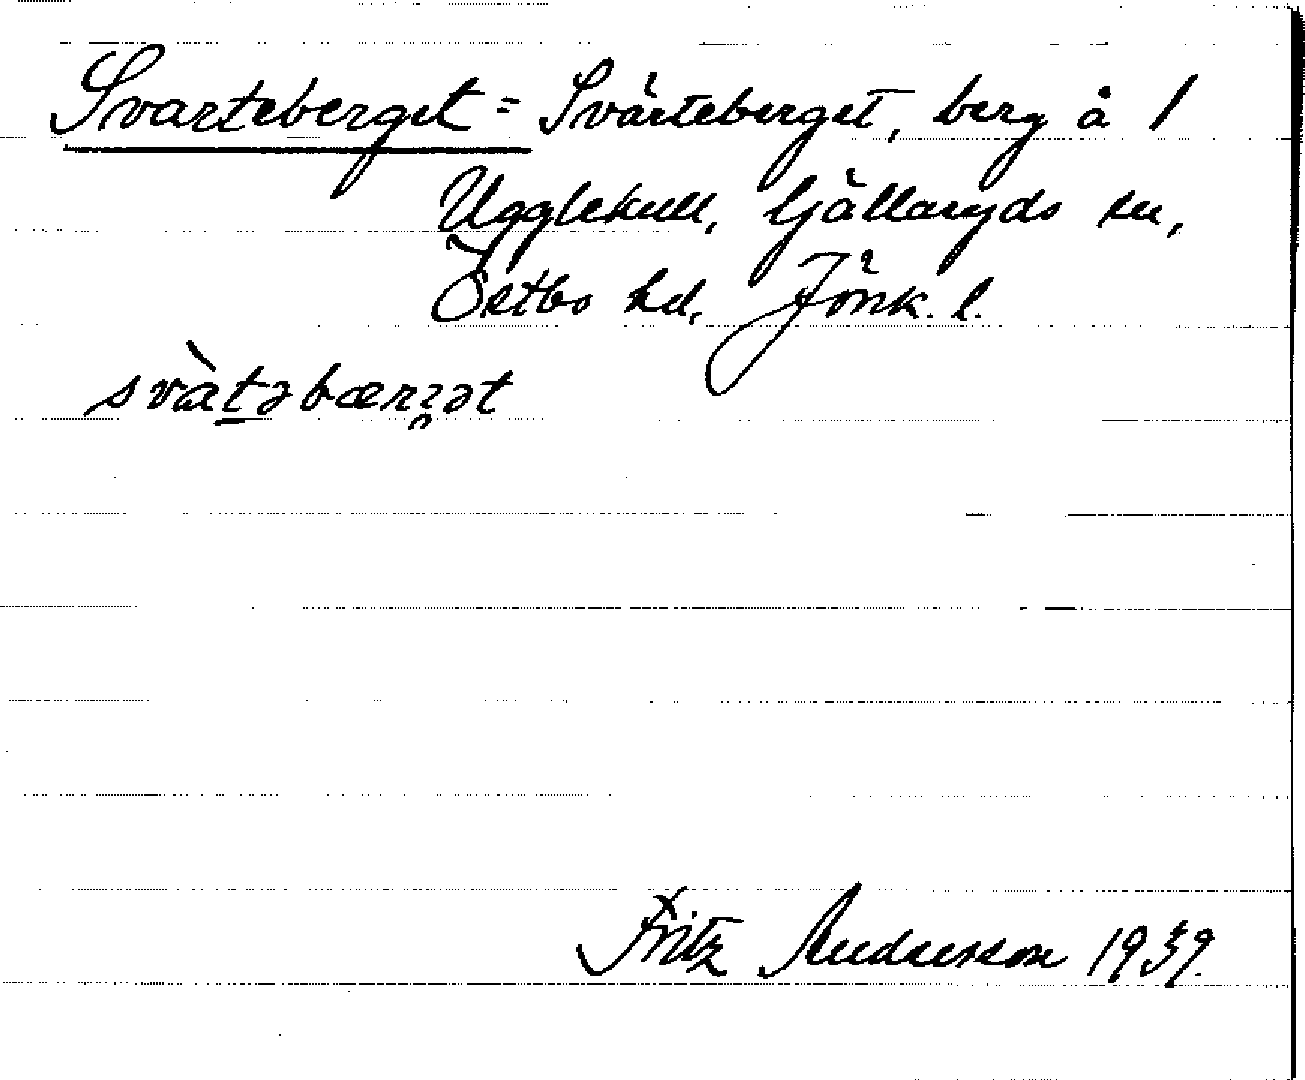 Svarteberget = Svarteberget, berg å 1
Ugglekull, Gällaryds sn,
Östbo hd, Jönk. l.
svàt̲əbærgət
Fritz Andersson 1939.